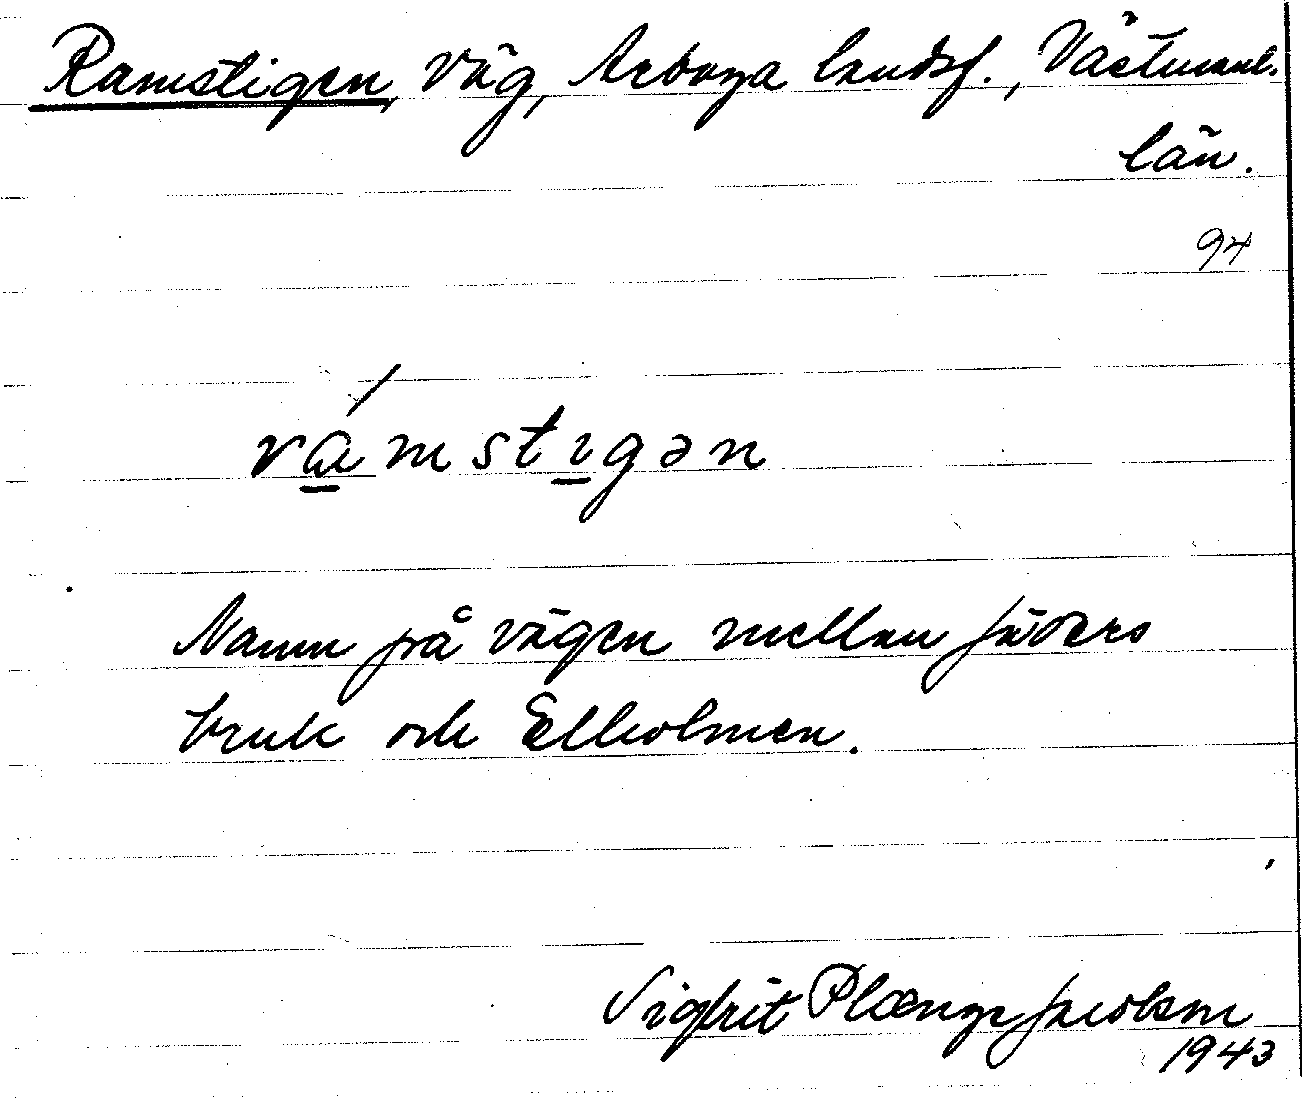 Ramstigen, väg, Arboga landsf., Västmanl.
län.
94
rámstıgən
Namn på vägen mellan Jäders
bruk och Ekholmen.
Sigfrit Plænge Jacobson
1943